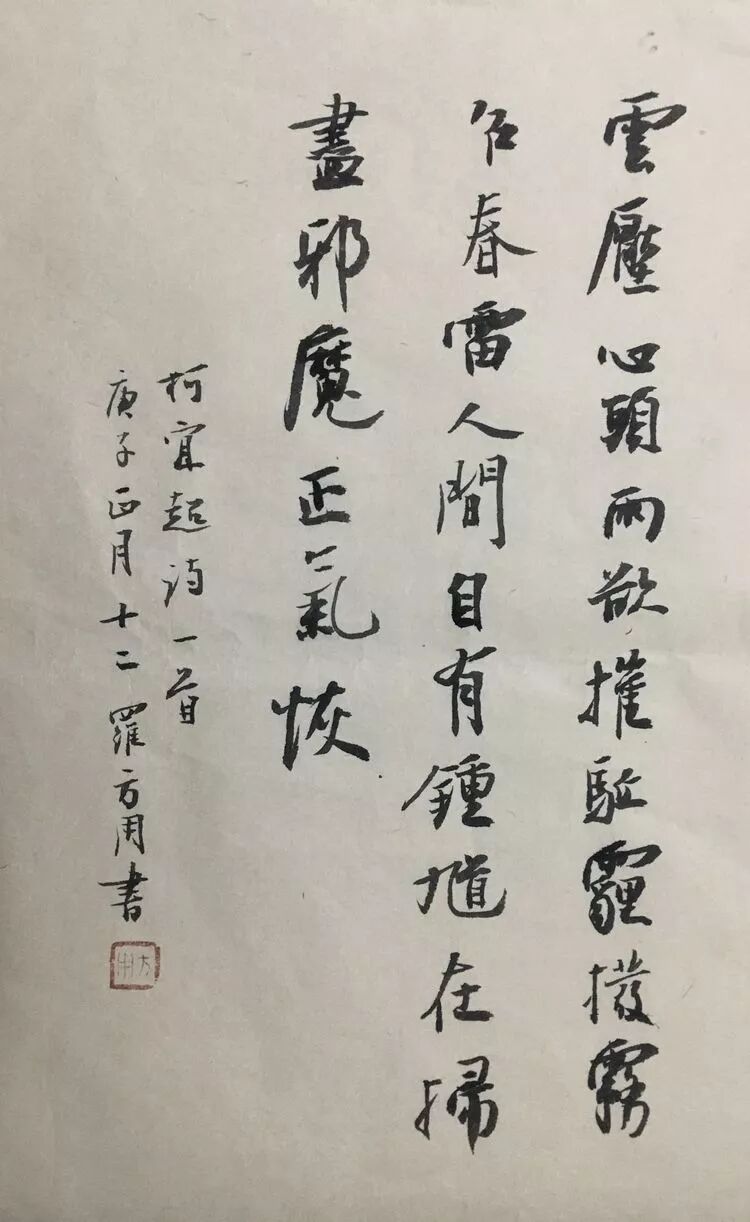 雲壓心頭雨欲摧駈霾撥霧
名春雷人間自有鍾馗在掃
盡邪魔正氣恢
柯宜超詩一首
庚子正月十二羅方用書
方用